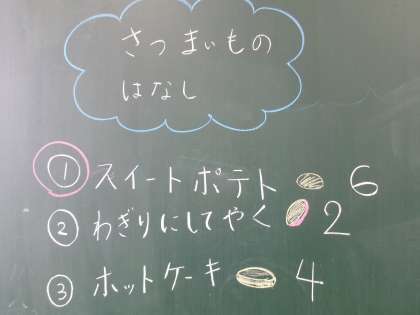 さつまいもの
はなし
① スイートポテト 6
② わぎりにしてやく 2
③ ホットケーキ 4